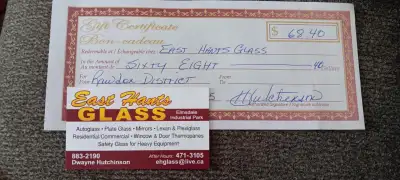 Gift Certificate
Bon-cadeau
$ 68.40
Redeemable at / Échangeable chez EAST HANTS GLASS
in the Amount of
Au montant de SIXTY EIGHT 40
RAWDON DISTRICT
East Hants
GLASS
Elmsdale
Industrial Park
Autoglass • Plate Glass • Mirrors • Lexan & Plexiglass
Residential/Commercial • Window & Door Thermopanes
Safety Glass for Heavy Equipment
883-2190
After Hours: 471-3105
Dwayne Hutchinson
ehglass@live.ca